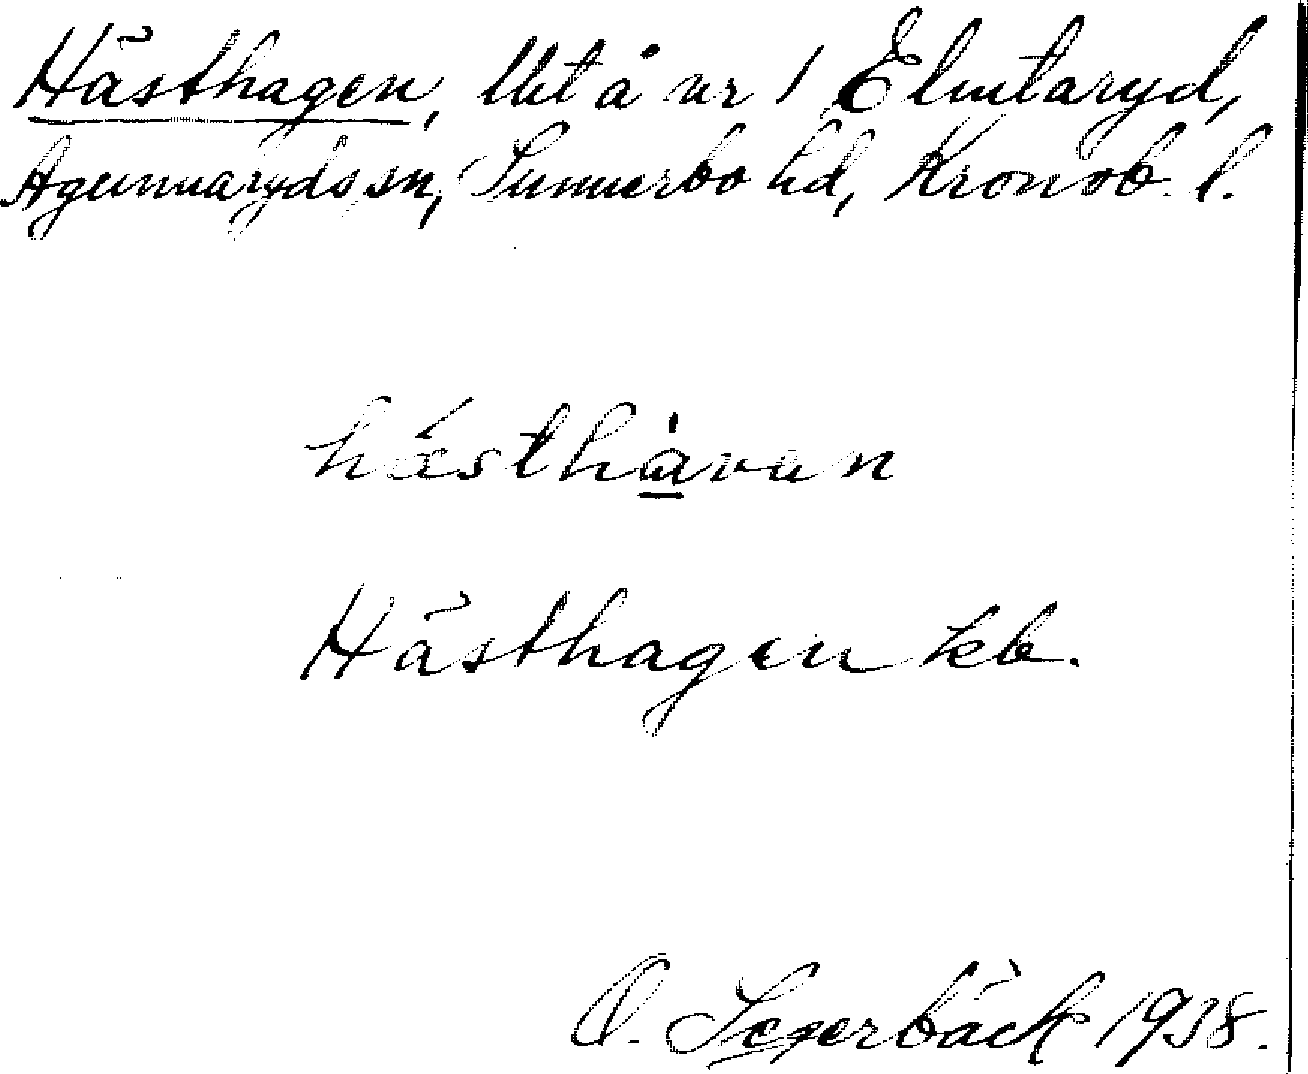 Hästhagen, lht å nr 1 Elmtaryd,
Agunnaryds sn, Sunnerbo hd, Kronob. l.
hásthà̱van
Hästhagen kb.
O. Segerbäck 1938.